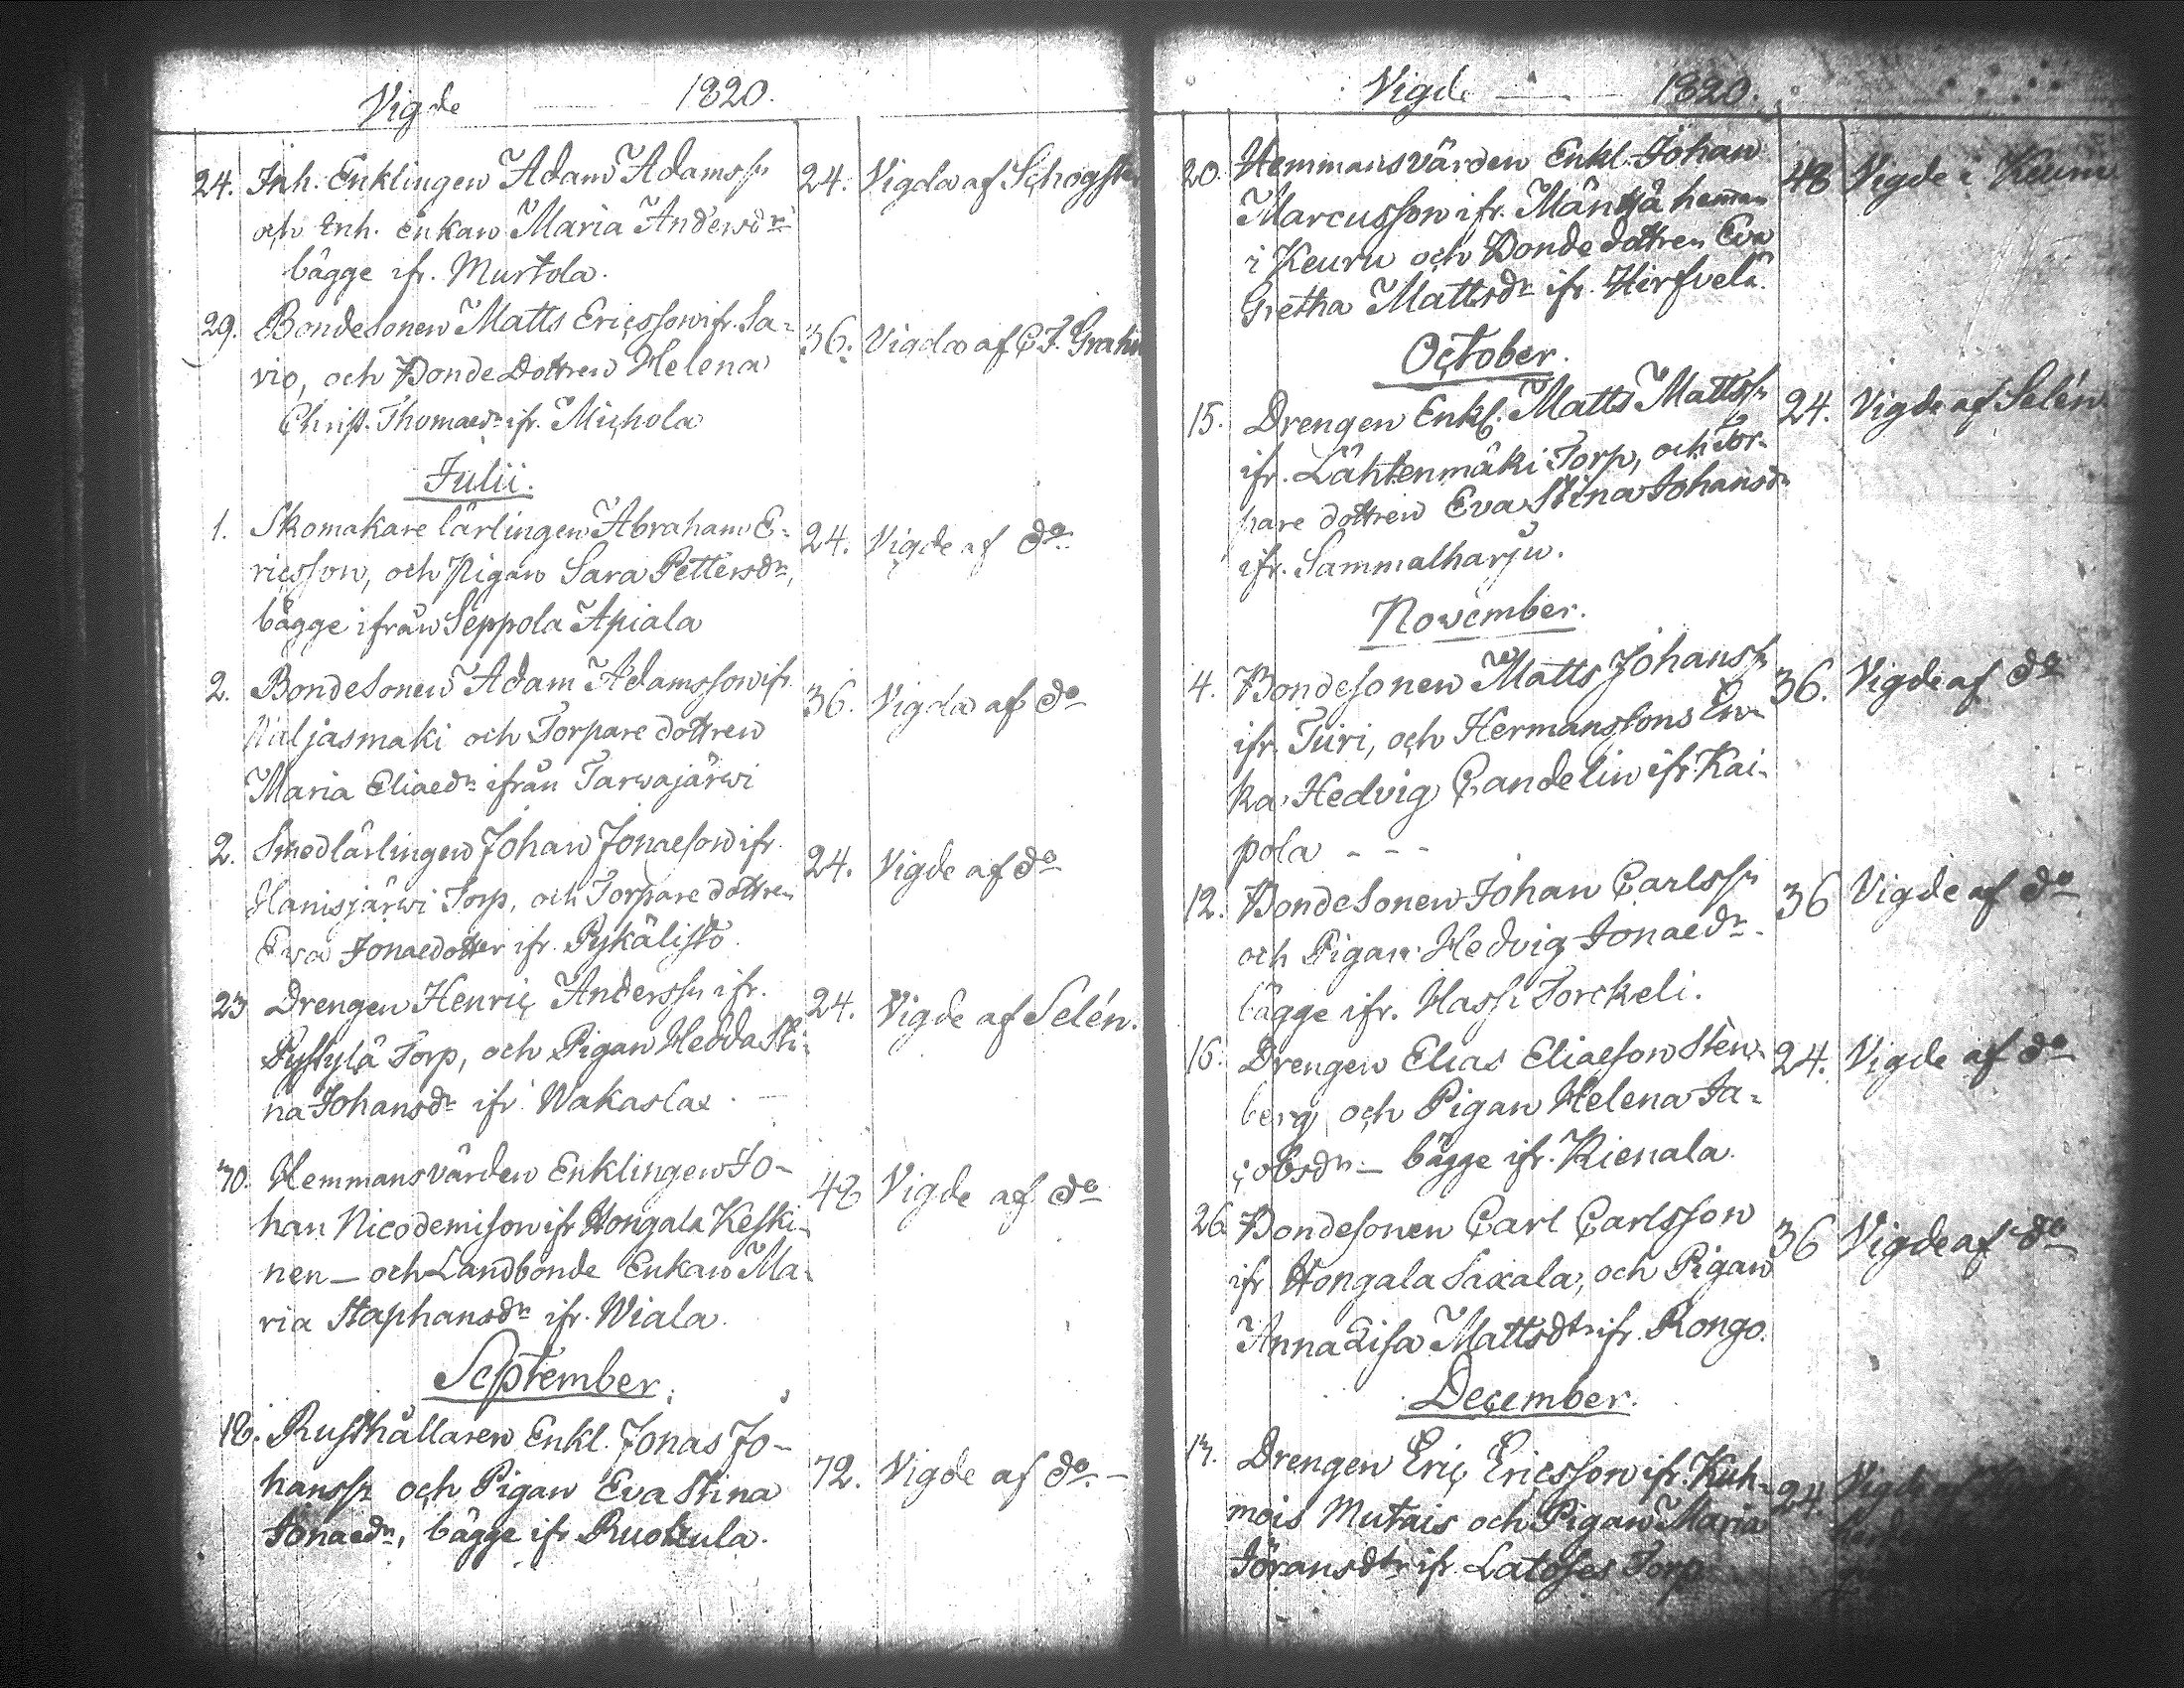 Vigde 1820.
24. Inh. Enklingen Adam Adamssn 24. Vigda af Schogster
och Enh. Enkan Maria Andersdr
bägge ifr. Murtola.
29. Bondesonen Matts Ericsson ifr. Sa- 36. Vigda af C. F. Grahn
vio, och Bonde Dottren Helena
Christ. Thomaedr ifr. Michola
Julii.
1. Skomakare lärlingen Abraham E- 24. Vigde af do
ricsson, och Pigan Sara Pettersdr,
bägge ifrån Seppola Apiala
2. Bondesonen Adam Adamsson ifr. 36. Vigda af do
Uiljasmaki och Torpare dottren
Maria Eliaedr ifrån Tarwajärwi
2. Smedlärlingen Johan Jonaeson ifr. 24. Vigde af do
Hanisjärwi Torp, och Torpare dottren
Eva Jonaedotter ifr. Pykälistö.
23 Drengen Henric Anderssn ifr. 24. Vigde af Selén.
Pyssylä Torp, och Pigan Hedda Sti-
na Johansdr ifr. Wakasla.
30. Hemmansvärden Enklingen Jo- 48 Vigde af do
han Nicodemison ifr. Hongala Keski-
nen - och Landbonde Enkan Ma-
ria Staphansdr ifr. Wiala.
September.
18. Rusthållaren Enkl. Jonas Jo- 72. Vigde af do. -
hanssn och Pigan Eva Stina
Jonaedr, bägge ifr. Ruokula.
Vigde 1820.
20. Hemmansvärden Enkl. Johan 48 Vigde i Keuru
Marcusson ifr. Mänttä heman
i Keuru och Bonde dottren Eva
Gretha Mattsdr ifr. Hirsvelä.
October.
15. Drengen Enkl. Matts Mattssn 24. Vigde af Selén
ifr. Lähtenmäki Torp, och Tor-
pare dottren Eva Stina Johansdr
ifr. Sammalharju.
November.
4. Bondesonen Matts Johanssn 36. Vigde af do
ifr. Turi, och Hermanssons En-
ka Hedvig Candelin ifr. Kai-
pola - - -
12. Bondesonen Johan Carlssn 36 Vigde af do
och Pigan Hedvig Jonaedr.
bägge ifr. Hassi Torckeli.
16. Drengen Elias Eliaeson Sten- 24. Vigde af do
berg, och Pigan Helena Ja-
cobsdr - bägge ifr. Rienala.
26 Bondesonen Carl Carlsson 36 Vigde af do
ifr. Hongala Saxala, och Pigan
Anna Lisa Mattsdtr ifr. Rongo.
December.
Drengen Eric Ericsson ifr. Kuh- 24. Vigde af
mois Mutais och Pigan Maria
Jöransdtr ifr. Latoses Torp